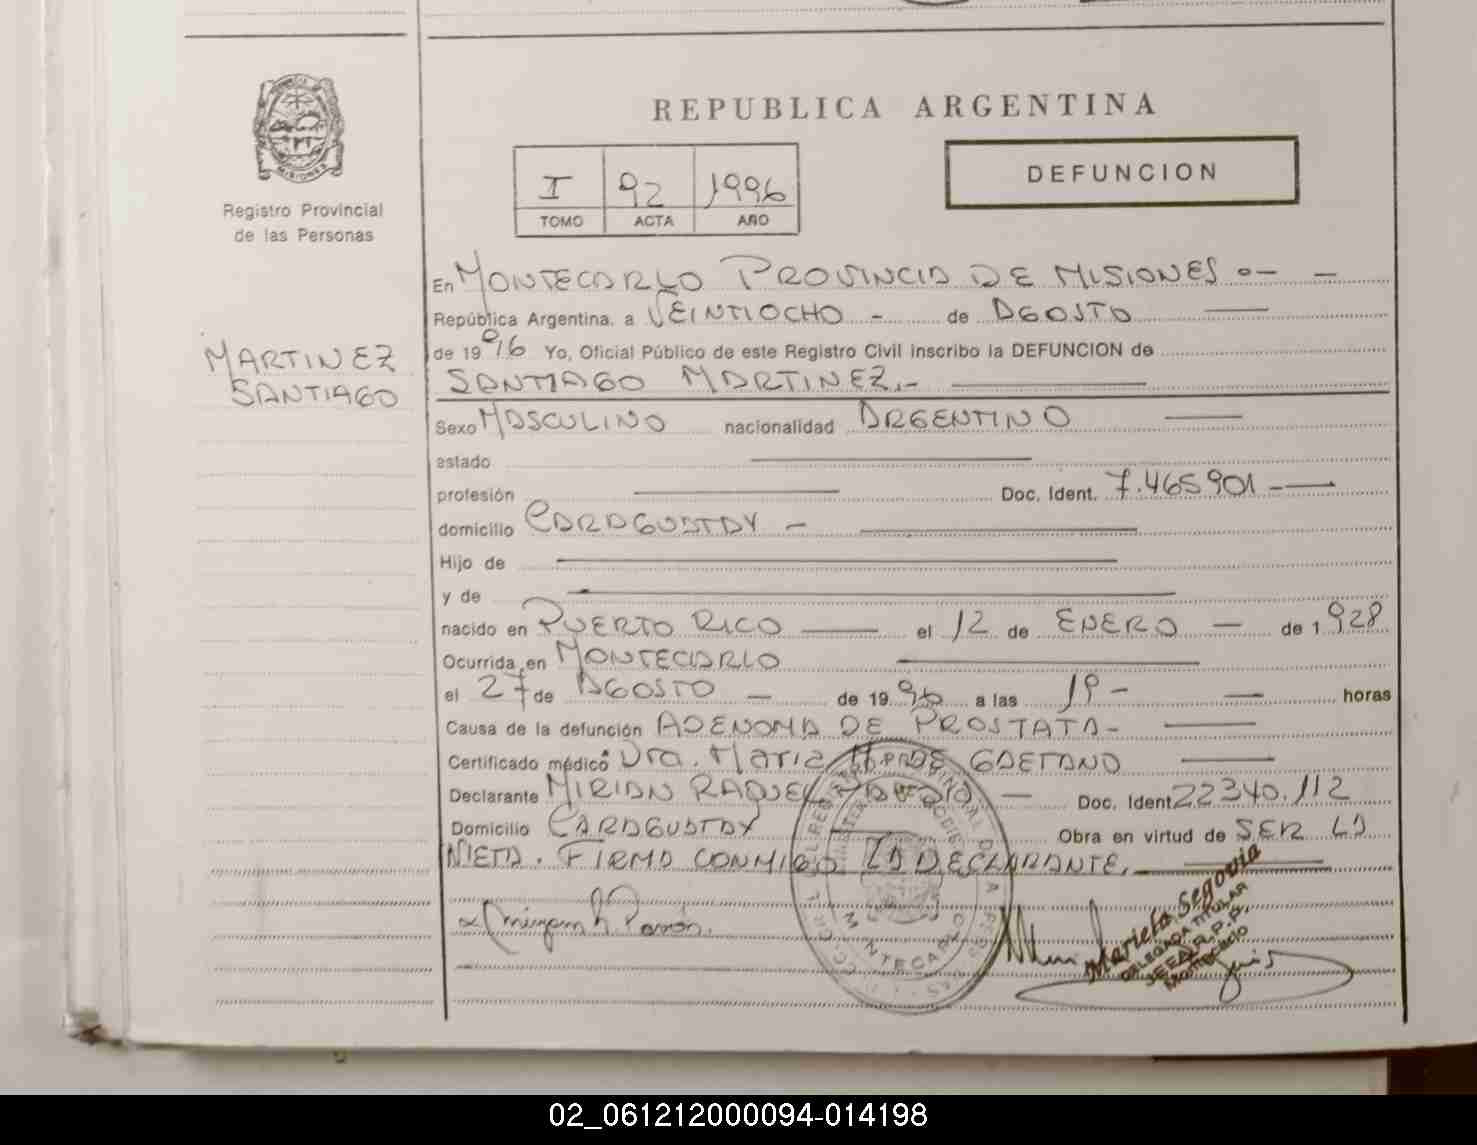 REPUBLICA ARGENTINA
MISIONES
Registro Provincial
de las Personas
I 92 1996
TOMO ACTA AÑO
DEFUNCION
MARTINEZ
SANTIAGO
En MONTECARLO PROVINCIA DE MISIONES.— —
República Argentina, a VEINTIOCHO - de AGOSTO —
de 1996 Yo, Oficial Público de este Registro Civil inscribo la DEFUNCION de
SANTIAGO MARTINEZ.- —
Sexo MASCULINO nacionalidad ARGENTINO —
estado —
profesión — Doc. Ident. 7.465901 - —
domicilio CARAGUATAY - —
Hijo de —
y de —
nacido en PUERTO RICO — el 12 de ENERO — de 1928
Ocurrida en MONTECARLO —
el 27 de AGOSTO — de 1996 a las 19 - — horas
Causa de la defunción ADENOMA DE PROSTATA- —
Certificado médico Dra. Maria DE GAETANO —
Declarante MIRIAN RAQUEL — Doc. Ident 22340.112
Domicilio CARAGUATAY — Obra en virtud de SER LA
NIETA. FIRMA CONMIGO LA DECLARANTE. —
Mariela Segovia
DELEGADA TITULAR
Montecarlo
MONTECARLO
02_061212000094-014198